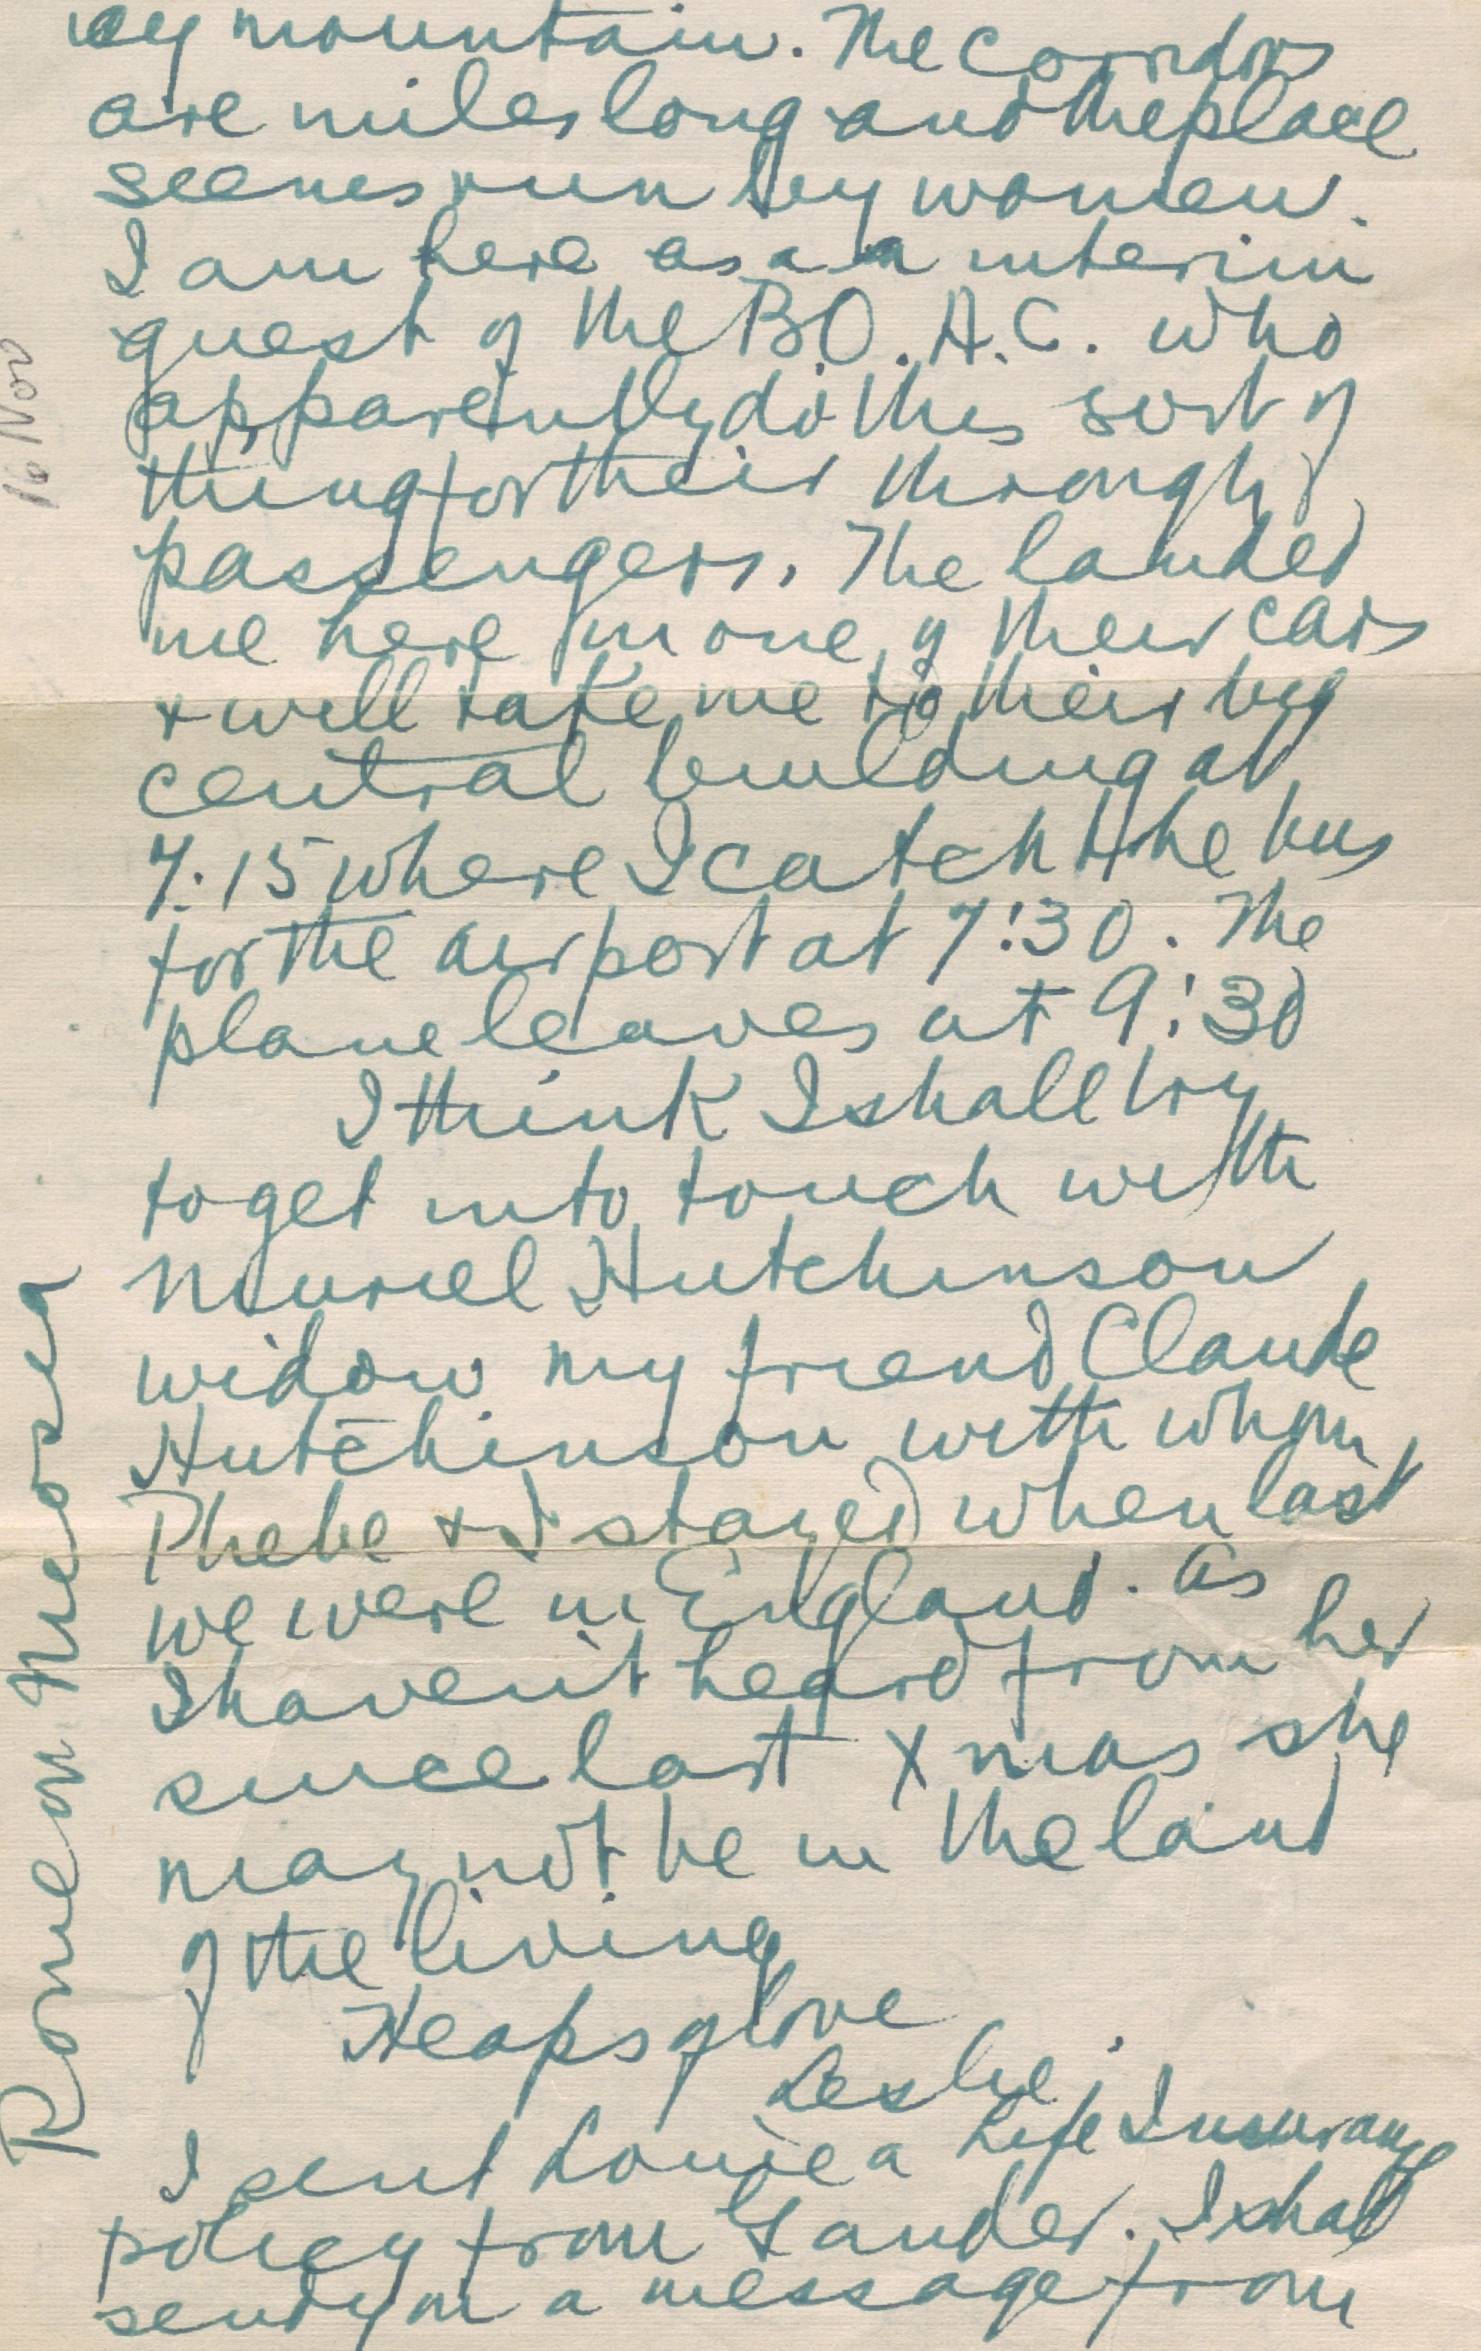 icy mountain. The Corridors
are miles long and the place
seems run by women.
I am here as a a interim
guest of the B.O.A.C. who
apparently do this sort of
thing for their through
passengers. The landed
me here in one of their cars
+ will take me to their big
central building at
7:15 where I catch the bus
for the airport at 7:30. The
plane leaves at 9:30
I think I shall try
to get into touch with
Muriel Hutchinson
widow my friend Claude
Hutchinson with whom
Phebe + I stayed when last
we were in England. As
I haven't heard from her
since last Xmas she
may not be in the land
of the living
Heaps of love
Leslie.
I sent Louie a Life Insurance
policy from Gander. I shall
send you a message from
Rome or
16 Nov